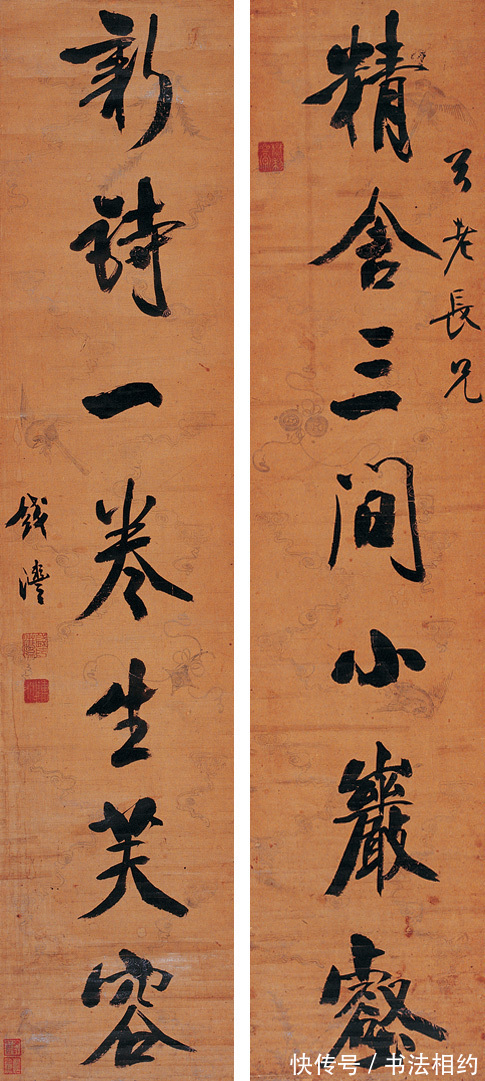 老長兄
精舍三間小巖壑
新詩一卷生芙容
錢灃
快传号 / 书法相约